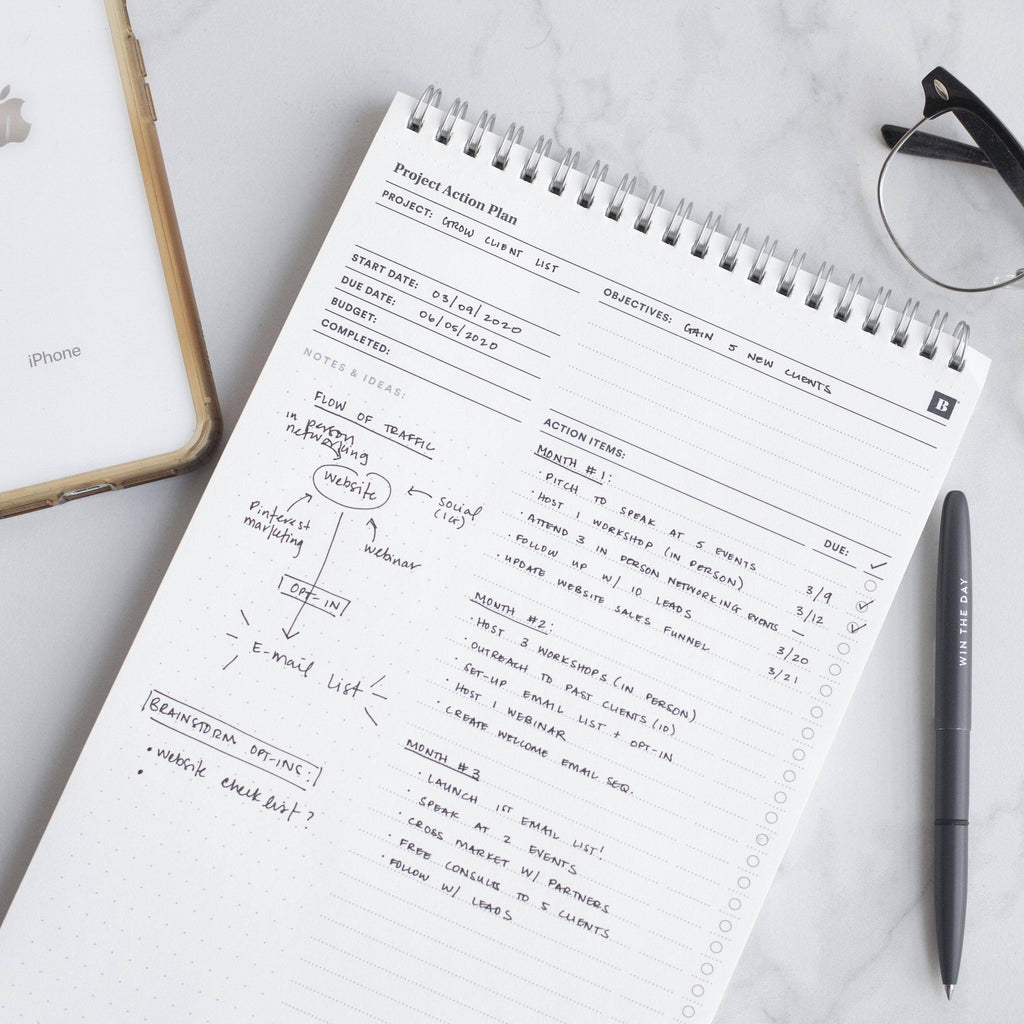 iPhone
Project Action Plan
PROJECT: GROW CLIENT LIST
START DATE: 03/09/2020
DUE DATE: 06/05/2020
BUDGET:
COMPLETED:
OBJECTIVES: GAIN 5 NEW CLIENTS
B
NOTES & IDEAS:
FLOW OF TRAFFIC
in person
networking
website
social
(IG)
Pinterest
marketing
webinar
OPT-IN
E-mail list
BRAINSTORM OPT-INS:
• website checklist?
•
ACTION ITEMS:
DUE: ✓
MONTH #1:
• PITCH TO SPEAK AT 5 EVENTS
• HOST 1 WORKSHOP (IN PERSON) 3/9
• ATTEND 3 IN PERSON NETWORKING EVENTS — 3/12
• FOLLOW UP W/ 10 LEADS 3/20
• UPDATE WEBSITE SALES FUNNEL 3/21
MONTH #2:
• HOST 3 WORKSHOPS (IN PERSON)
• OUTREACH TO PAST CLIENTS (10)
• SET-UP EMAIL LIST + OPT-IN
• HOST 1 WEBINAR
• CREATE WELCOME EMAIL SEQ.
MONTH #3
• LAUNCH 1ST EMAIL LIST!
• SPEAK AT 2 EVENTS
• CROSS MARKET W/ PARTNERS
• FREE CONSULTS TO 5 CLIENTS
• FOLLOW W/ LEADS
WIN THE DAY